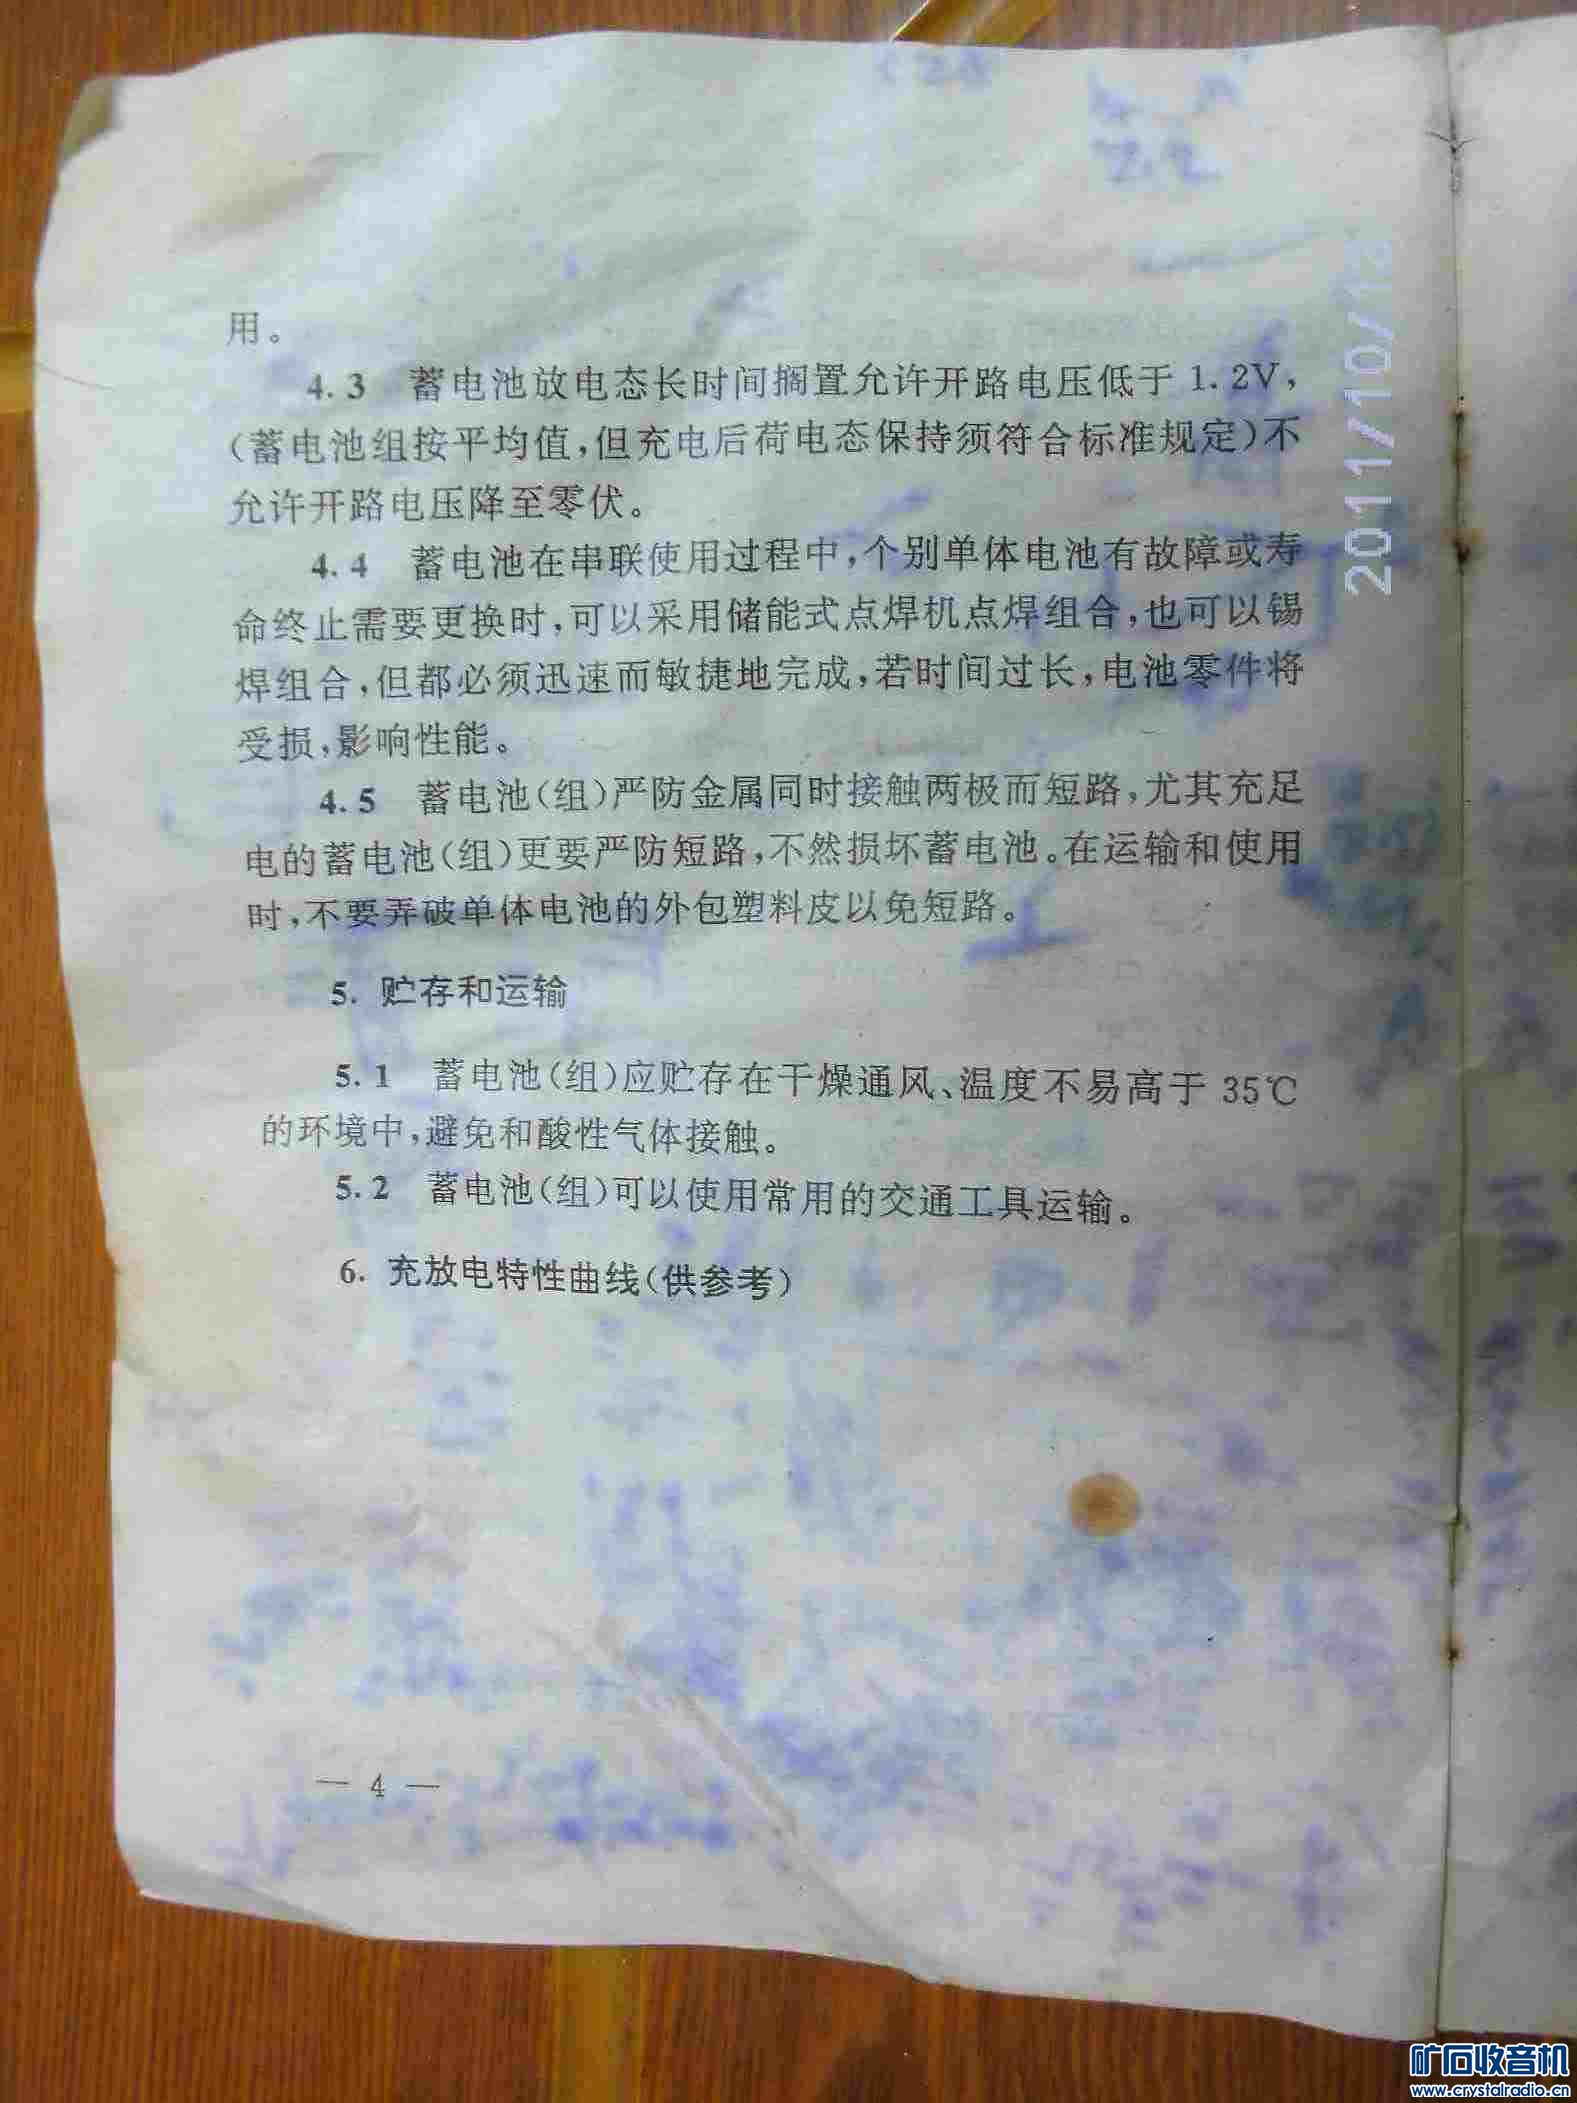 用。
4.3 蓄电池放电态长时间搁置允许开路电压低于 1.2V，
（蓄电池组按平均值，但充电后荷电态保持须符合标准规定）不
允许开路电压降至零伏。
4.4 蓄电池在串联使用过程中，个别单体电池有故障或寿
命终止需要更换时，可以采用储能式点焊机点焊组合，也可以锡
焊组合，但都必须迅速而敏捷地完成，若时间过长，电池零件将
受损，影响性能。
4.5 蓄电池（组）严防金属同时接触两极而短路，尤其充足
电的蓄电池（组）更要严防短路，不然损坏蓄电池。在运输和使用
时，不要弄破单体电池的外包塑料皮以免短路。
5. 贮存和运输
5.1 蓄电池（组）应贮存在干燥通风、温度不易高于 35℃
的环境中，避免和酸性气体接触。
5.2 蓄电池（组）可以使用常用的交通工具运输。
6. 充放电特性曲线（供参考）
— 4 —
2011/10/18
矿石收音机
www.crystalradio.cn